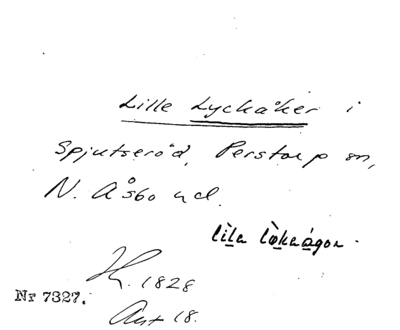 Lille Lyckåker i
Spjutseröd, Perstorp sn,
N. Åsbo hd.
lila
H. 1828
Nr 7327.
Art 18.